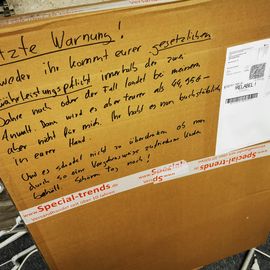 Special-trends
Versand
tzte Warnung!
weder ihr kommt eurer gesetzlichen
währleistungspflicht innerhalb der zwei
Jahre nach oder der Fall landet bei meinem
Anwalt. Dann wird es aber teurer als 44,95€ -
aber nicht für mich. Ihr habt es nun buchstäblich
in eurer Hand.
Und es schadet nicht zu überdenken ob man
durch so eine Vorgehensweise zufriedene Kunden
behält. Schönen Tag noch!
RELABEL!
Special-trends.de
Versandhandel seit über 10 Jahren
Special-trends